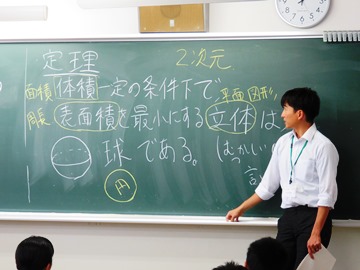 定理
2次元
面積 体積一定の条件下で 平面図形
周長 表面積を最小にする立体は
球である。
円